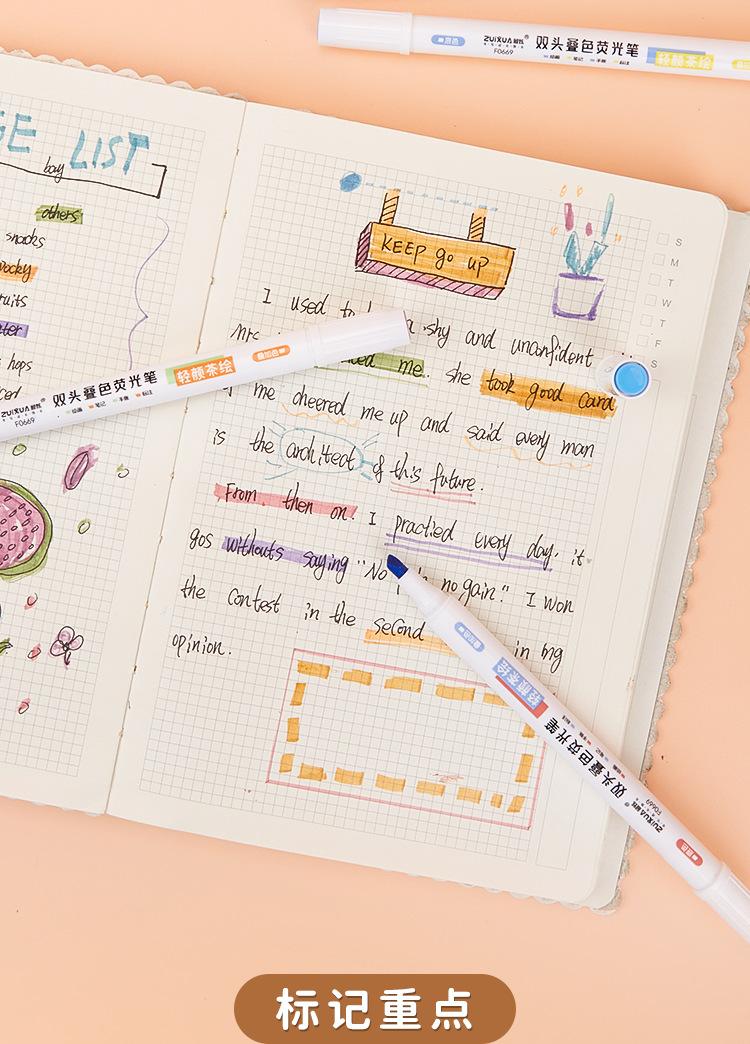 ZUiXUA
F0669
双头叠色荧光笔
绘画 笔记 手账 标注
轻颜茶绘
GE LIST
bay
others
snacks
hops
S
M
T
W
T
F
S
KEEP go up
I used to shy and unconfident
Mrs me. she took good card
me cheered me up and said every man
is the architect of this future.
From then on. I practied every day. it
gos withouts saying "No no gain." I won
the contest in the second in mg
opinion.
ZUiXUA
F0669
双头叠色荧光笔
绘画 笔记 手账 标注
轻颜茶绘
叠加色
轻颜茶绘
双头叠色荧光笔
ZUiXUA
F0669
标记重点